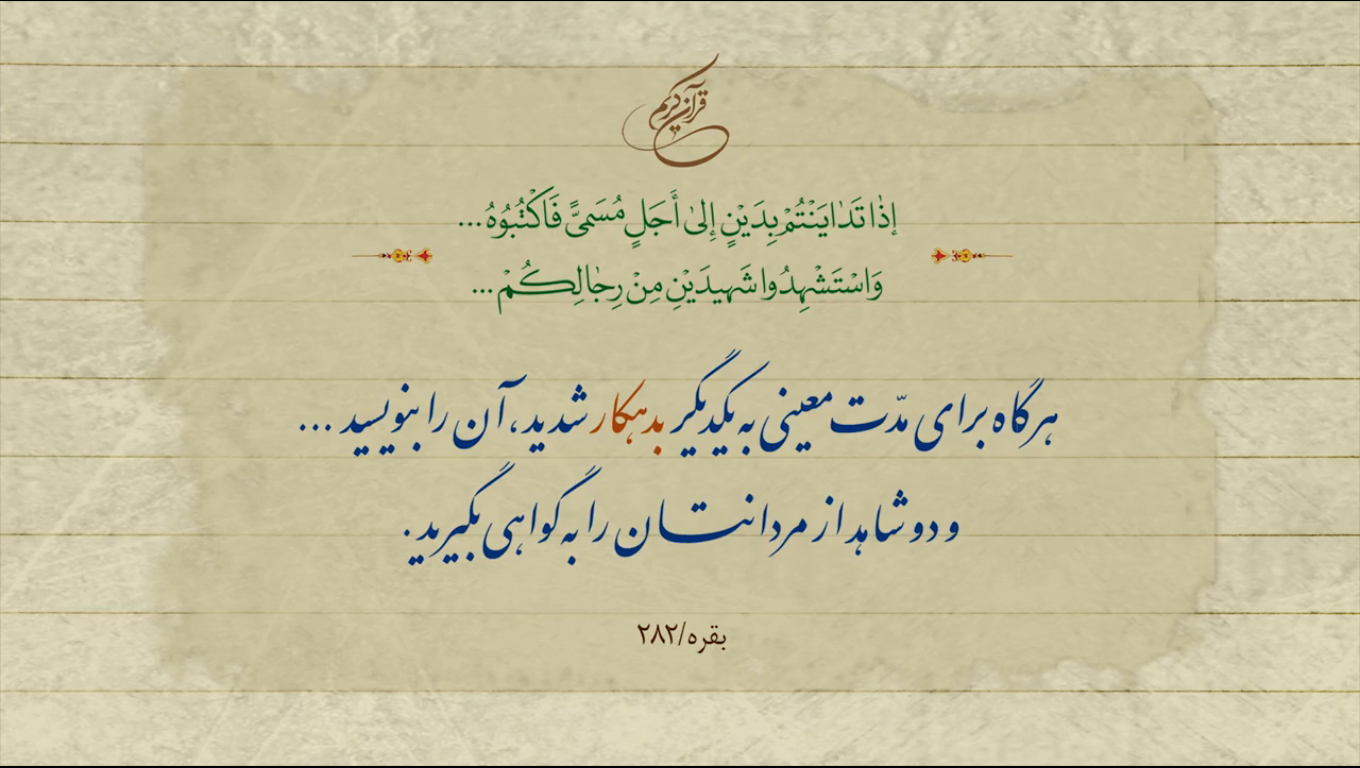 قرآن کریم
إِذٰا تَدٰایَنْتُمْ بِدَیْنٍ إِلىٰ أَجَلٍ مُسَمىًّ فَاكْتُبُوُهُ ...
وَاسْتَشْهِدُوا شَهیدَیْنِ مِنْ رِجٰالِكُمْ ...
هرگاه برای مدّت معینی به یکدیگر بدهکار شدید، آن را بنویسید ...
و دو شاهد از مردانتان را به گواهی بگیرید.
بقره/۲۸۲